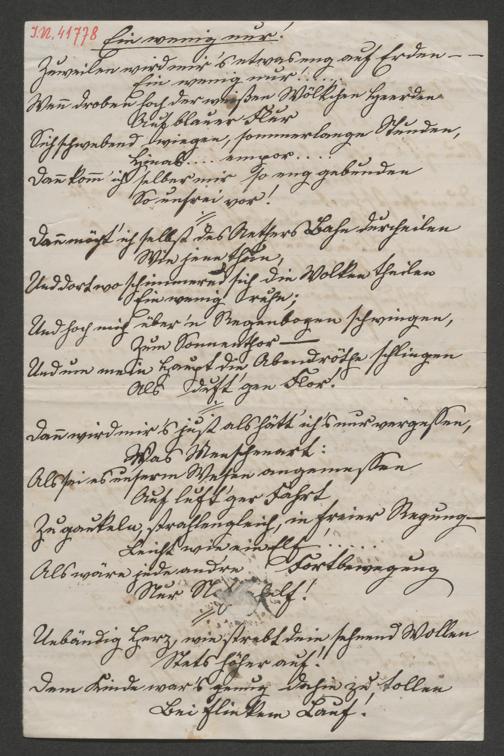 I.N. 41778
Ein wenig nur!
Zuweilen wird mir's etwas eng auf Erden – –
Ein wenig nur! ....
Wenn droben hoch der weißen Wölkchen Heerden
Auf blauer Flur
Sich schwebend wiegen, sommerlange Stunden,
Hinab .... empor ....
Dann komm' ich selber mir so eng gebunden
So unfrei vor!
Dann möcht' ich selbst des Aethers Bahn durcheilen
Wie jene thun,
Und dort wo schimmernd sich die Wolken theilen
Ein wenig ruhn;
Und hoch mich über'n Regenbogen schwingen,
Zum Sonnenthor –
Und um mein Haupt die Abendröthe schlingen
Als duft'gen Flor.
Dann wird mir's just als hätt' ich's nur vergessen,
Was Menschenart:
Als sei es unserm Wesen angemessen
Auf luft'ger Fahrt
Zu gaukeln, strahlengleich, in freier Regung –
Leicht wie ein Elf ......
Als wäre jede andre Fortbewegung
Nur
Unbändig Herz, wie strebt dein sehnend Wollen
Stets höher auf!
Dem Kinde war's genug dahin zu tollen
Bei flinkem Lauf!